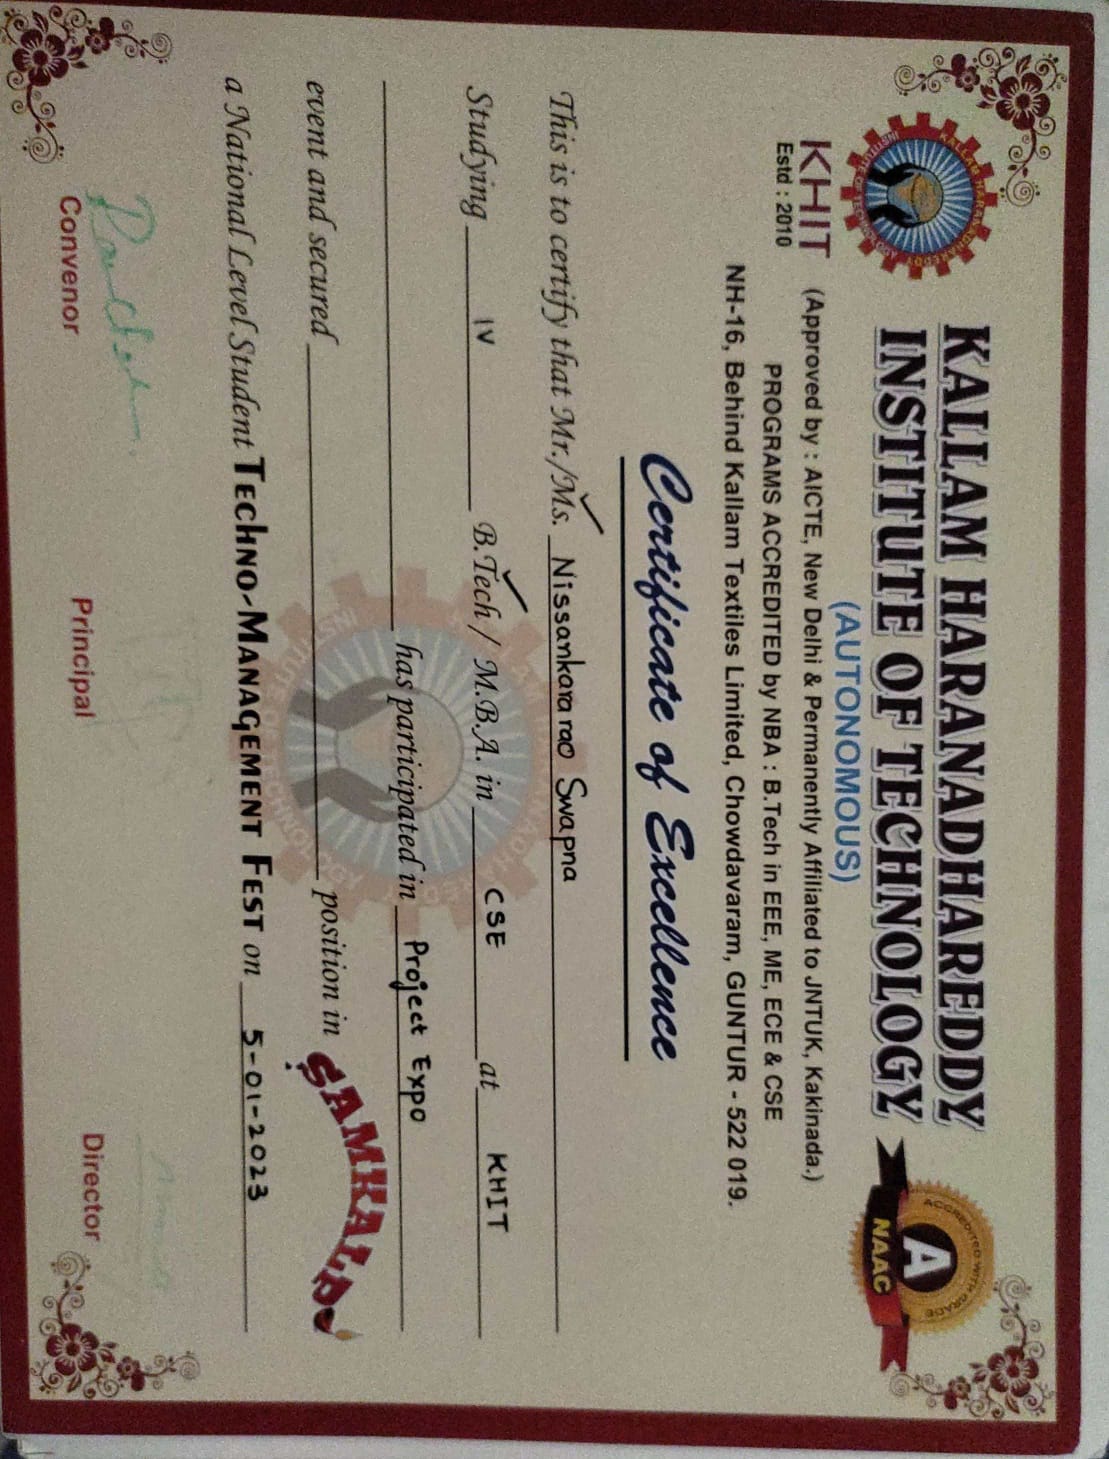 KALLAM HARANADHAREDDY
INSTITUTE OF TECHNOLOGY
(AUTONOMOUS)
KALLAM HARANADHAREDDY
INSTITUTE OF TECHNOLOGY
KHIT
Estd : 2010
ACCREDITED WITH GRADE
A
NAAC
(Approved by : AICTE, New Delhi & Permanently Affiliated to JNTUK, Kakinada.)
PROGRAMS ACCREDITED by NBA : B.Tech in EEE, ME, ECE & CSE
NH-16, Behind Kallam Textiles Limited, Chowdavaram, GUNTUR - 522 019.
Certificate of Excellence
This is to certify that Mr./Ms. Nissankararao Swapna
Studying IV B.Tech / M.B.A. in CSE at KHIT
has participated in Project Expo
event and secured position in SAMKALP
a National Level Student TECHNO-MANAGEMENT FEST on 5-01-2023
Convenor
Principal
Director